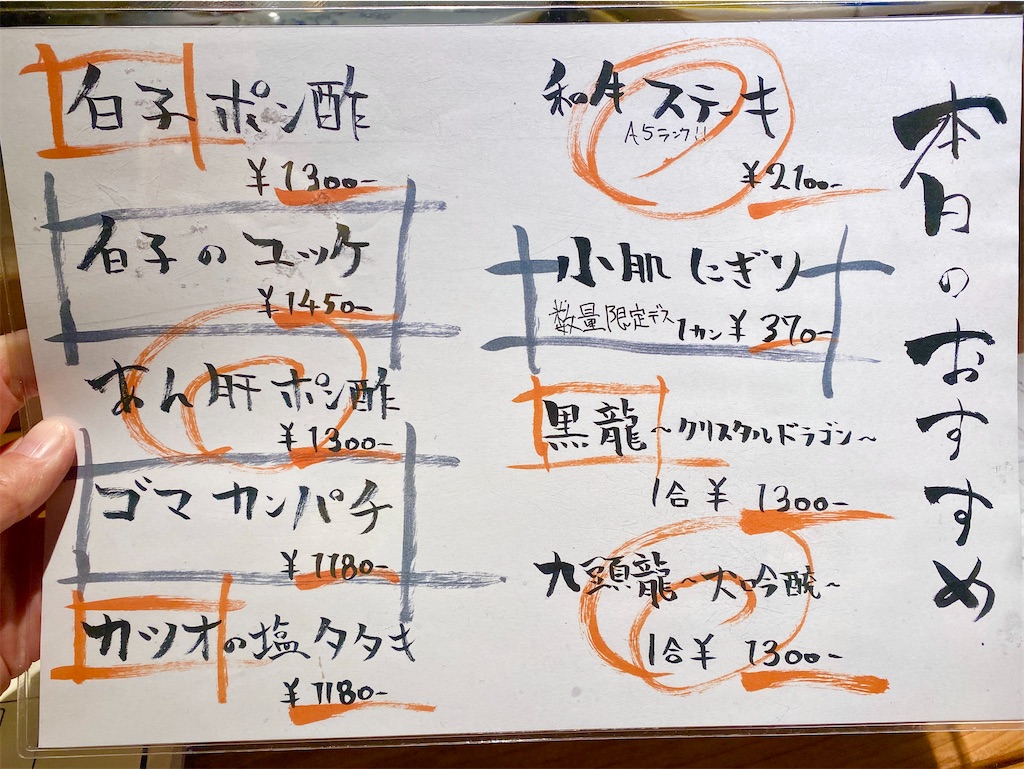 本日のおすすめ
和牛ステーキ
A5ランク!!
¥2100-
小肌にぎり
数量限定デス 1カン¥370-
黒龍～クリスタルドラゴン～
1合¥1300-
九頭龍～大吟醸～
1合¥1300-
白子ポン酢
¥1300-
白子のユッケ
¥1450-
あん肝ポン酢
¥1300-
ゴマカンパチ
¥1180-
カツオの塩タタキ
¥1180-